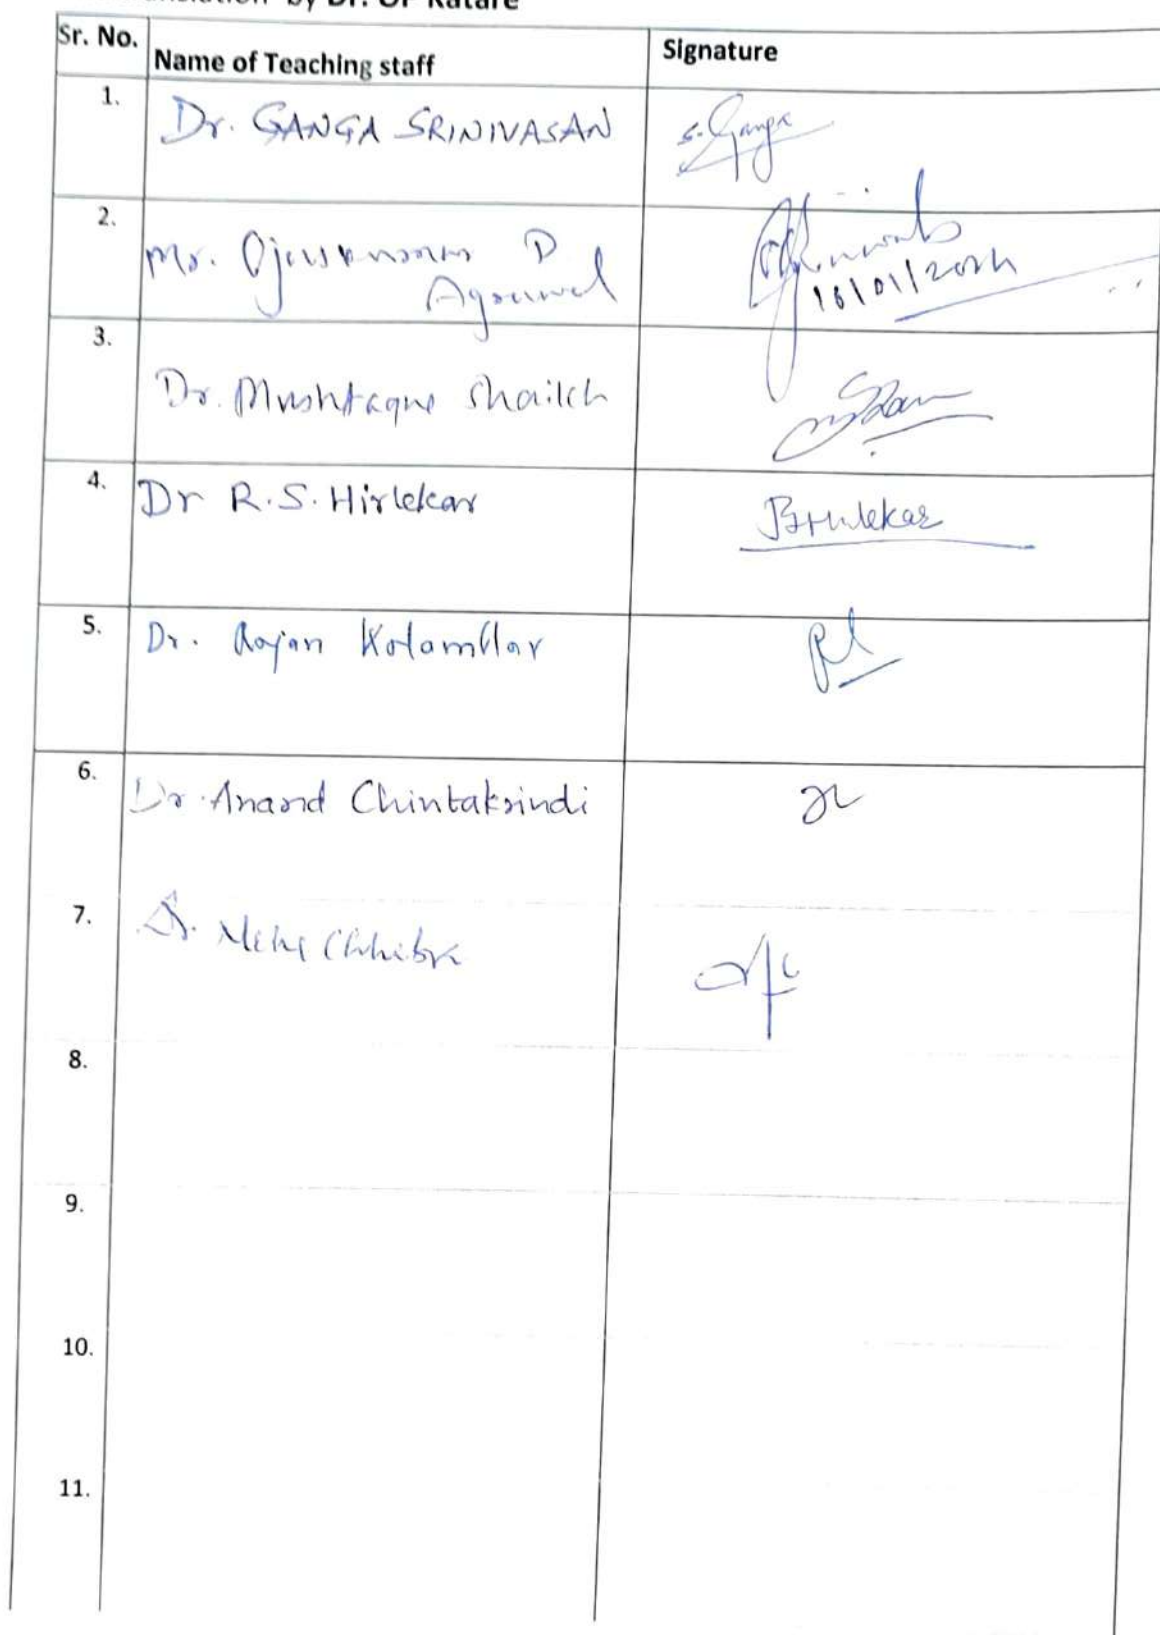 by Dr. OP Katare
Sr. No. Name of Teaching staff Signature
1. Dr. GANGA SRINIVASAN S. Ganga
2. Mr. D
Agrawal
16/01/2024
3. Dr. Mushtaque Shaikh
4. Dr R.S. Hirlekar RHirlekar
5. Dr. Rajan
6. Dr. Anand Chintakrindi
7. Dr.
8.
9.
10.
11.